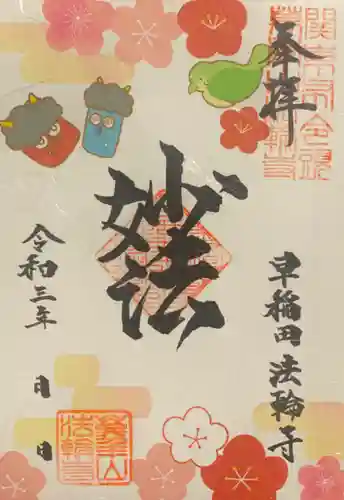 奉拝
妙法
早稲田 法輪寺
令和三年
月 日